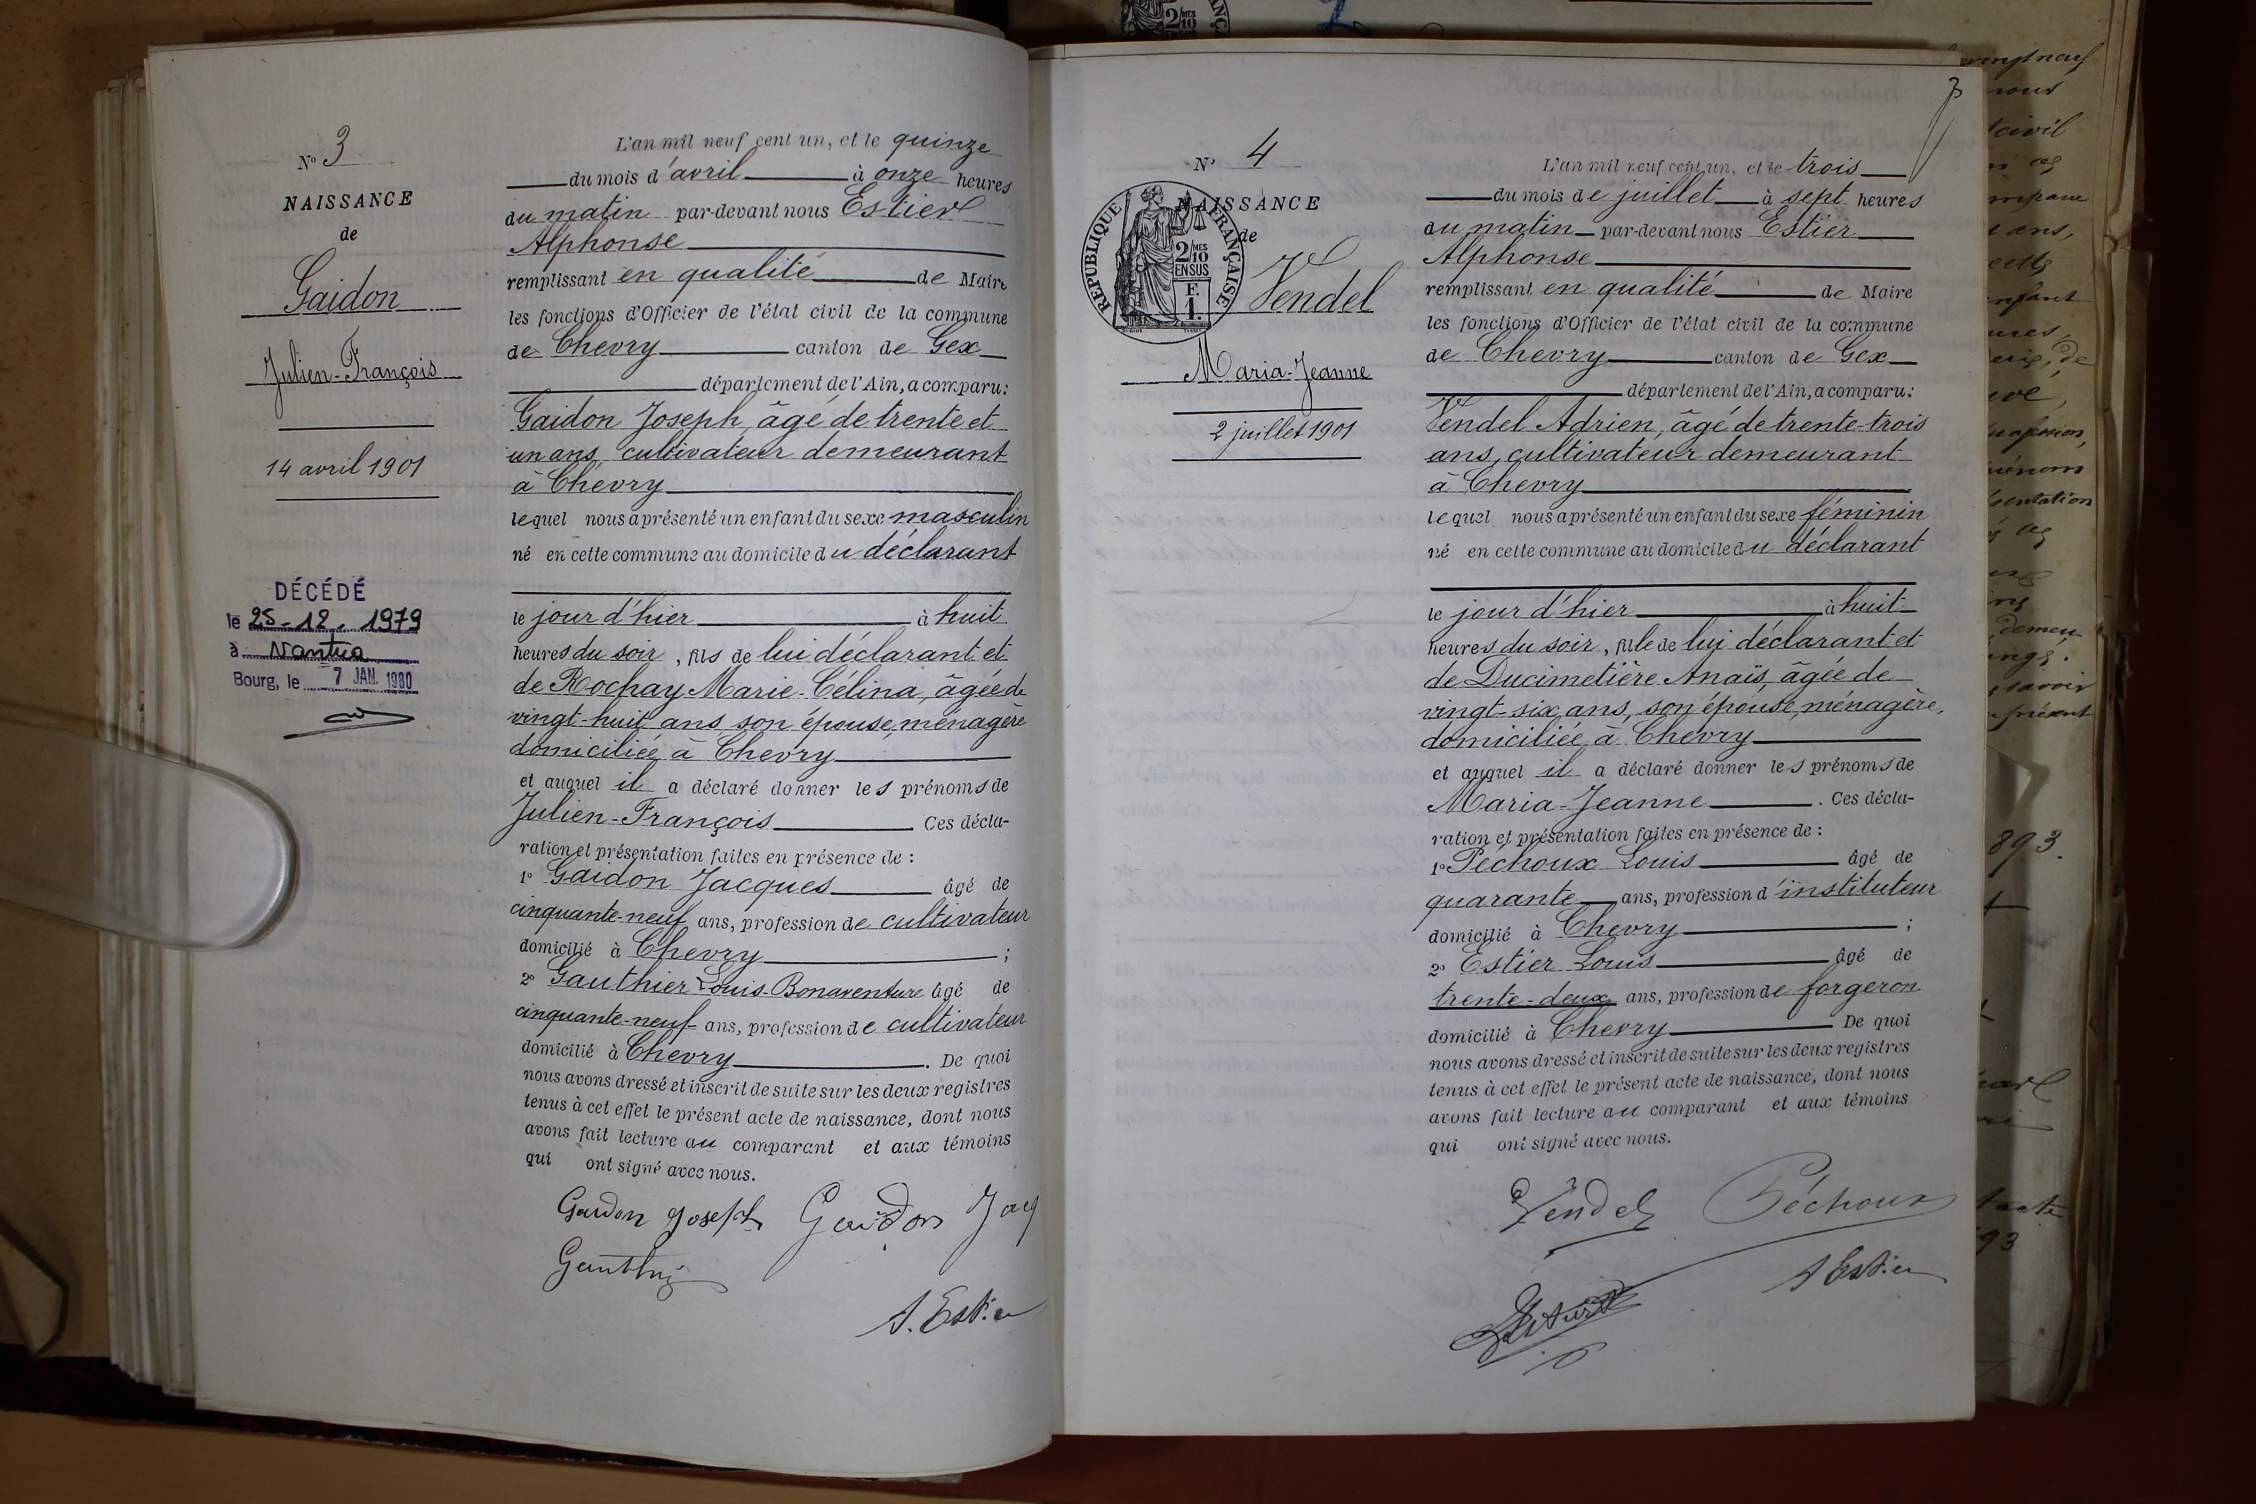 N° 3
NAISSANCE
de
Gaidon
Julien-François
14 avril 1901
DÉCÉDÉ
le 25-12-1979
à Nantua
Bourg, le 7 JAN. 1980
L'an mil neuf cent un, et le quinze
du mois d'avril à onze heures
du matin par-devant nous Estier
Alphonse
remplissant en qualité de Maire
les fonctions d'Officier de l'état civil de la commune
de Chevry canton de Gex
département de l'Ain, a comparu:
Gaidon Joseph, âgé de trente et
un ans, cultivateur demeurant
à Chevry
lequel nous a présenté un enfant du sexe masculin
né en cette commune au domicile du déclarant
le jour d'hier à huit
heures du soir, fils de lui déclarant et
de Rochay Marie-Célina, âgée de
vingt-huit ans son épouse, ménagère
domiciliée à Chevry
et auquel il a déclaré donner les prénoms de
Julien-François Ces décla-
ration et présentation faites en présence de :
1° Gaidon Jacques âgé de
cinquante-neuf ans, profession de cultivateur
domicilié à Chevry ;
2° Gauthier Louis-Bonaventure âgé de
cinquante-neuf ans, profession de cultivateur
domicilié à Chevry . De quoi
nous avons dressé et inscrit de suite sur les deux registres
tenus à cet effet le présent acte de naissance, dont nous
avons fait lecture au comparant et aux témoins
qui ont signé avec nous.
Gaidon Joseph Gaidon Jacq
Gauthier
A. Estier
N° 4
NAISSANCE
de
RÉPUBLIQUE FRANÇAISE
2/10 MES
EN SUS
F.
1.
Vendel
Maria-Jeanne
2 juillet 1901
L'an mil neuf cent un, et le trois
du mois de juillet à sept heures
du matin par-devant nous Estier
Alphonse
remplissant en qualité de Maire
les fonctions d'Officier de l'état civil de la commune
de Chevry canton de Gex
département de l'Ain, a comparu:
Vendel Adrien, âgé de trente-trois
ans, cultivateur demeurant
à Chevry
lequel nous a présenté un enfant du sexe féminin
né en cette commune au domicile du déclarant
le jour d'hier à huit
heures du soir, fille de lui déclarant et
de Ducimetière Anaïs, âgée de
vingt-six ans, son épouse, ménagère,
domiciliée à Chevry
et auquel il a déclaré donner les prénoms de
Maria-Jeanne . Ces décla-
ration et présentation faites en présence de :
1° Péchoux Louis âgé de
quarante ans, profession d'instituteur
domicilié à Chevry ;
2° Estier Louis âgé de
trente-deux ans, profession de forgeron
domicilié à Chevry De quoi
nous avons dressé et inscrit de suite sur les deux registres
tenus à cet effet le présent acte de naissance, dont nous
avons fait lecture au comparant et aux témoins
qui ont signé avec nous.
Vendel Péchoux
A Estier